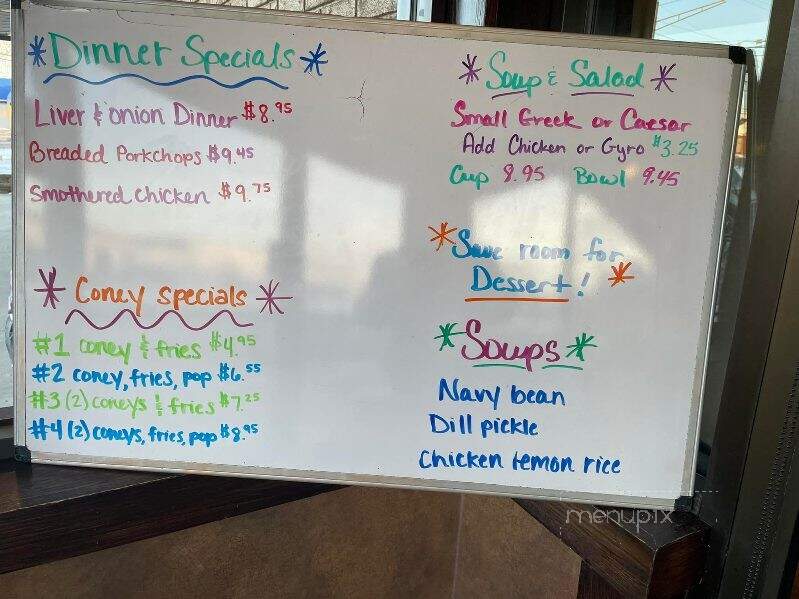 *Dinner Specials*
Liver & onion Dinner $8.95
Breaded Porkchops $9.45
Smothered Chicken $9.75
*Coney Specials*
#1 coney & fries $4.95
#2 coney, fries, pop $6.55
#3 (2) coneys & fries $7.25
#4 (2) coneys, fries, pop $8.95
*Soup & Salad*
Small Greek or Caesar
Add Chicken or Gyro $3.25
Cup 8.95 Bowl 9.45
*Save room for
Dessert! *
*Soups*
Navy bean
Dill pickle
Chicken lemon rice
menupix